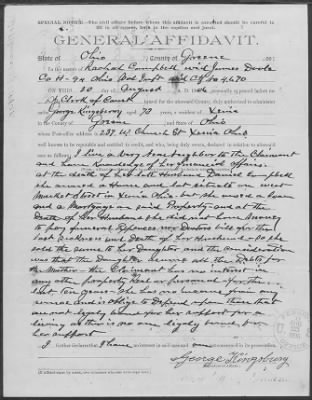 SPECIAL NOTICE.—The civil officer before whom this affidavit is executed should be careful to
fill in all spaces, both in the body and jurat.
GENERAL AFFIDAVIT.
State of Ohio, County of Greene, ss:
In the matter of Rachel Campbell
Co H - 94 Ohio Vol Inft
ON THIS 20 day of August, personally appeared before me
a Clerk of Court in and for the aforesaid County, duly authorized to administer
oaths George Kingsbury aged 73 years, a resident of Xenia
in the County of Greene and State of Ohio
whose Post-office address is 237 W Church St Xenia Ohio
well known to be reputable and entitled to credit, and who, being duly sworn, declares in relation to aforesaid
case as follows:
I live a very near neighbor to the Claimant
and have Knowledge of her financial affairs
at the death of her last Husband Daniel Campbell
she owned a House and Lot situate on west
Market Street in Xenia Ohio but she owed a Loan
and a Mortgage on said Property and at the
Death of her Husband she did not have money
to pay funeral Expences nor Doctors bill for the
last sickness and Death of her Husband so she
sold the same to her Daughter and the consideration
was that the Daughter assume all the Debts for
the Mother - the Claimant has no interest in
any other property Real or personal for the
last ten years. She has no income from any
source and is oblige to Depend upon those that
are not legally bound for her support for a
living as there is no one legally bound for
her support
I further declare that I have no interest in said case
George Kingsbury